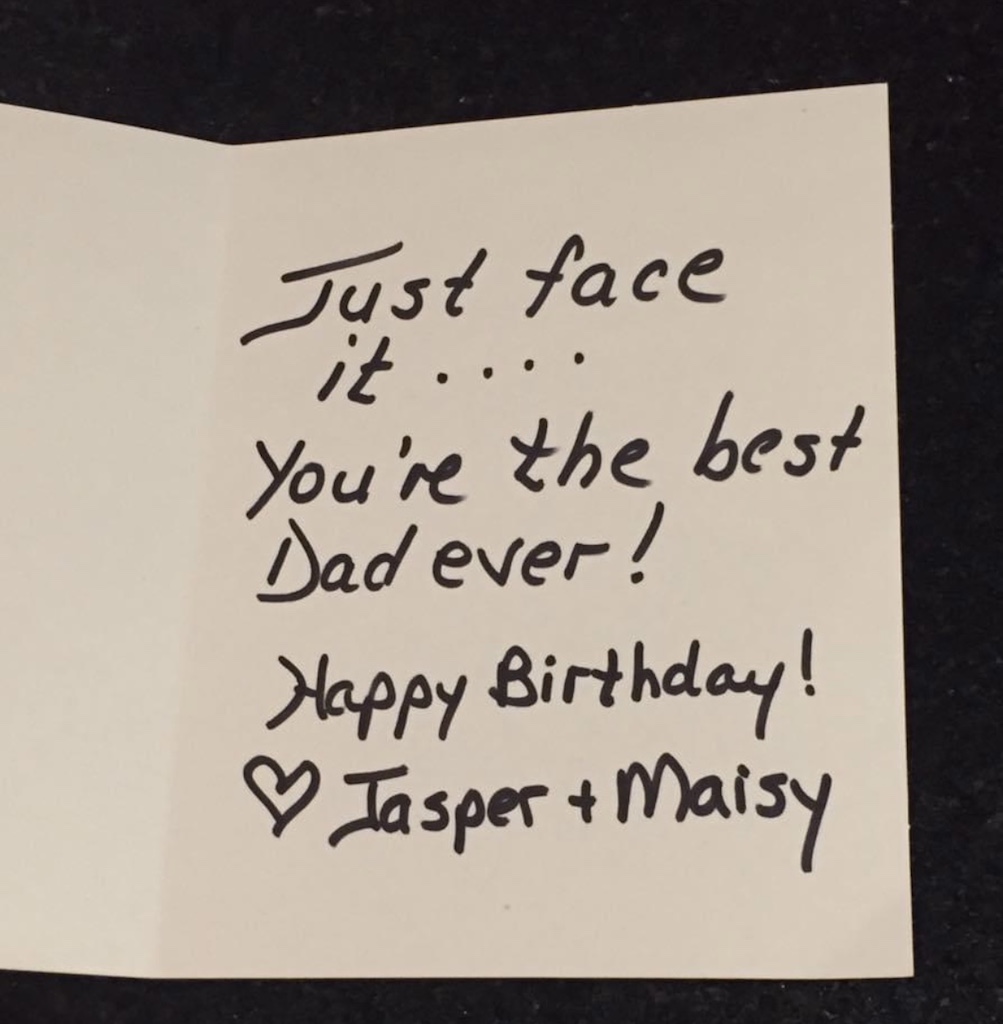 Just face
it ....
You're the best
Dad ever!
Happy Birthday!
♡ Jasper + Maisy